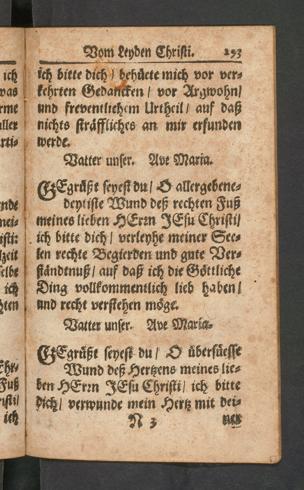 Vom Leyden Christi. 293
ich bitte dich / behüete mich vor ver-
kehrten Gedancken / vor Argwohn /
und freventlichem Urtheil / auf daß
nichts sträffliches an mir erfunden
werde.
Vatter unser. Ave Maria.
GEgrüßt seyest du / O allergebene-
deytiste Wund deß rechten Fuß
meines lieben HErrn JEsu Christi /
ich bitte dich / verleyhe meiner See-
len rechte Begierden und gute Ver-
ständtnuß / auf daß ich die Göttliche
Ding vollkommentlich lieb haben /
und recht verstehen möge.
Vatter unser. Ave Maria.
GEgrüßt seyest du / O übersüesse
Wund deß Hertzens meines lie-
ben HErrn JEsu Christi / ich bitte
dich / verwunde mein Hertz mit dei-
N 3 ner